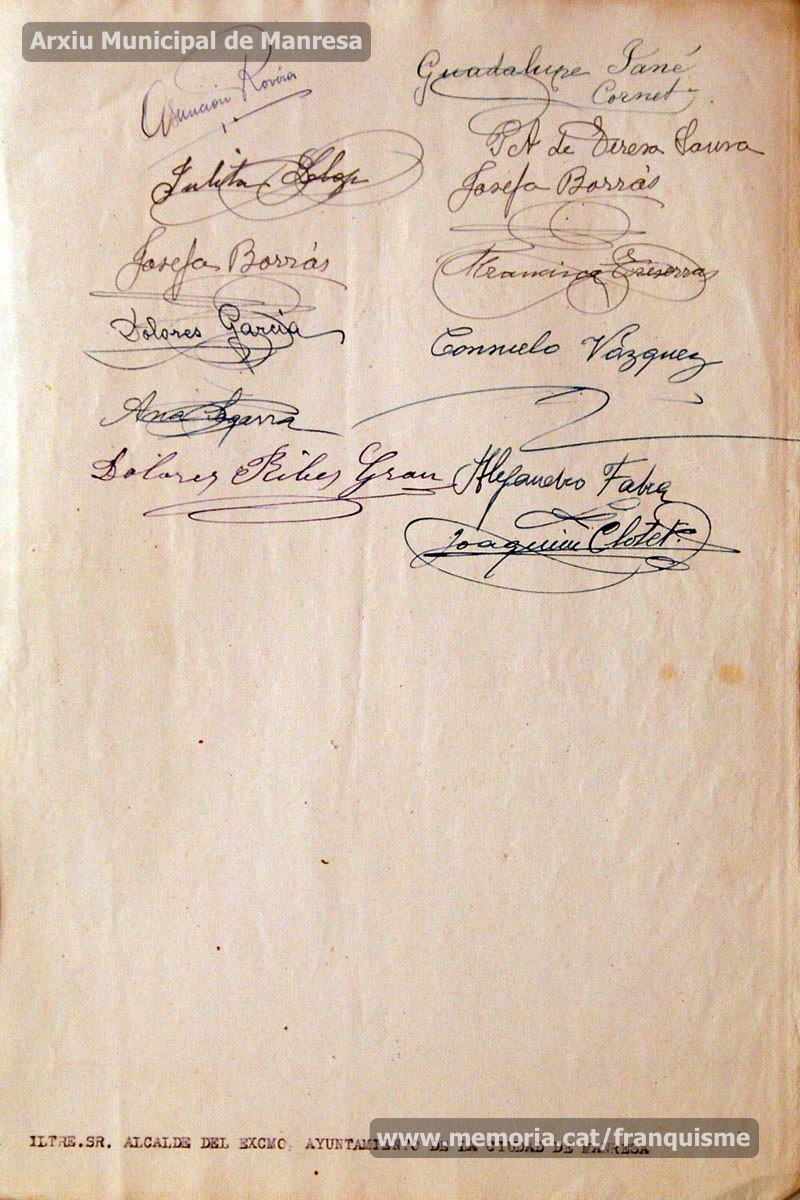 Arxiu Municipal de Manresa
Asunción Rovira
Guadalupe Tané
Cornet
P.A de Teresa Saura
Julita
Josefa Borrás
Josefa Borrás
Francisca
Dolores García
Consuelo Vázquez
Ana Segarra
Dolores Ribes Grau
Alejandro Fabra
Joaquim Clotet
ILTRE.SR. ALCALDE DEL EXCMO. AYUNTAMIENTO DE LA CIUDAD DE MANRESA
www.memoria.cat/franquisme